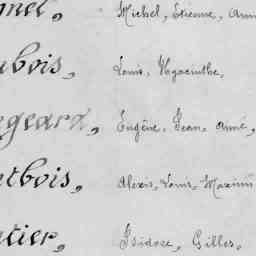 mel, Michel, Etienne, Ann
ubois, Louis, Hyacinthe,
geard, Eugène, Jean, Aimé,
etbois, Alexis, Louis, Maximi
etier, Isidore, Gilles,